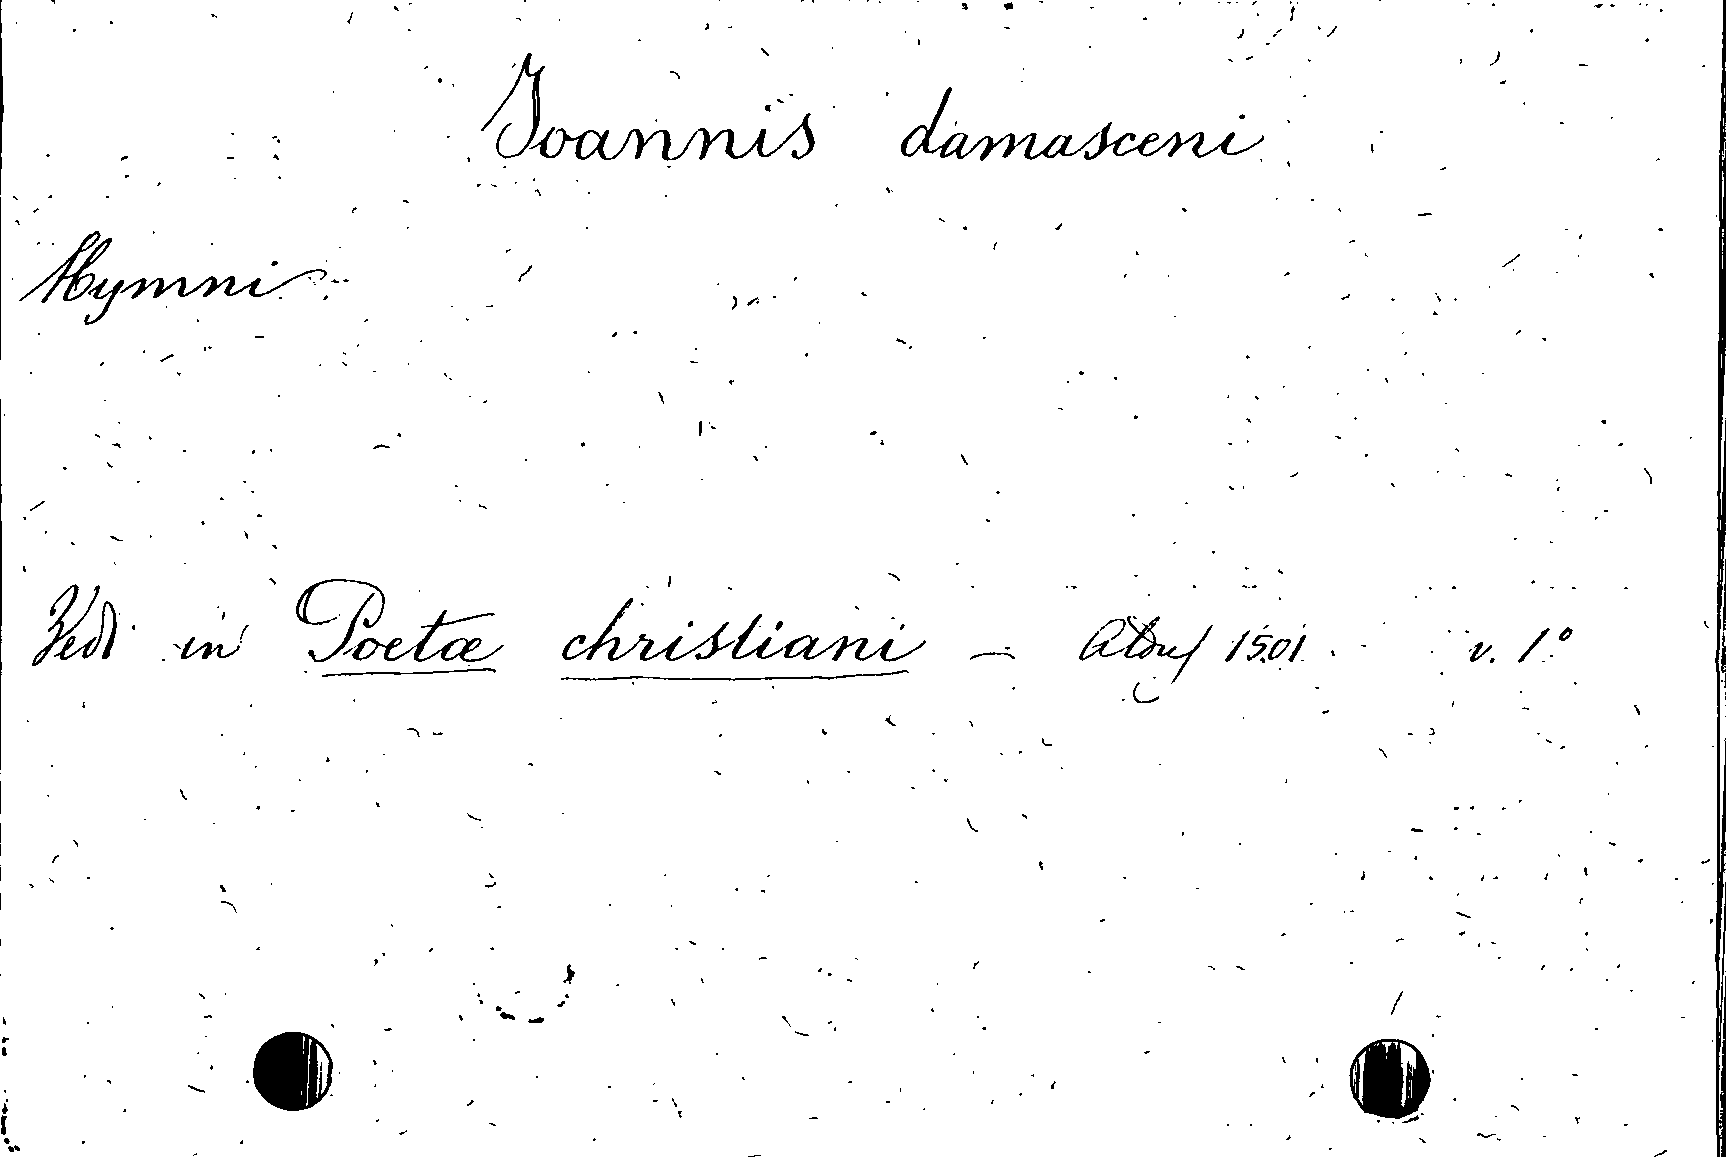 Joannis damasceni
Hymni
Vedi in Poetæ christiani – 1501 v. 1º